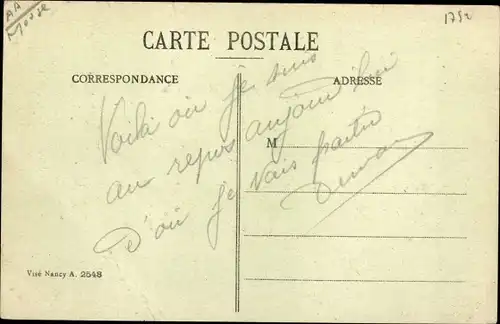 AA
Meuse
1752
CARTE POSTALE
CORRESPONDANCE
ADRESSE
Voilà où je suis
au repos aujourd'hui
d'où je vais partir
M
Visé Nancy A. 2548